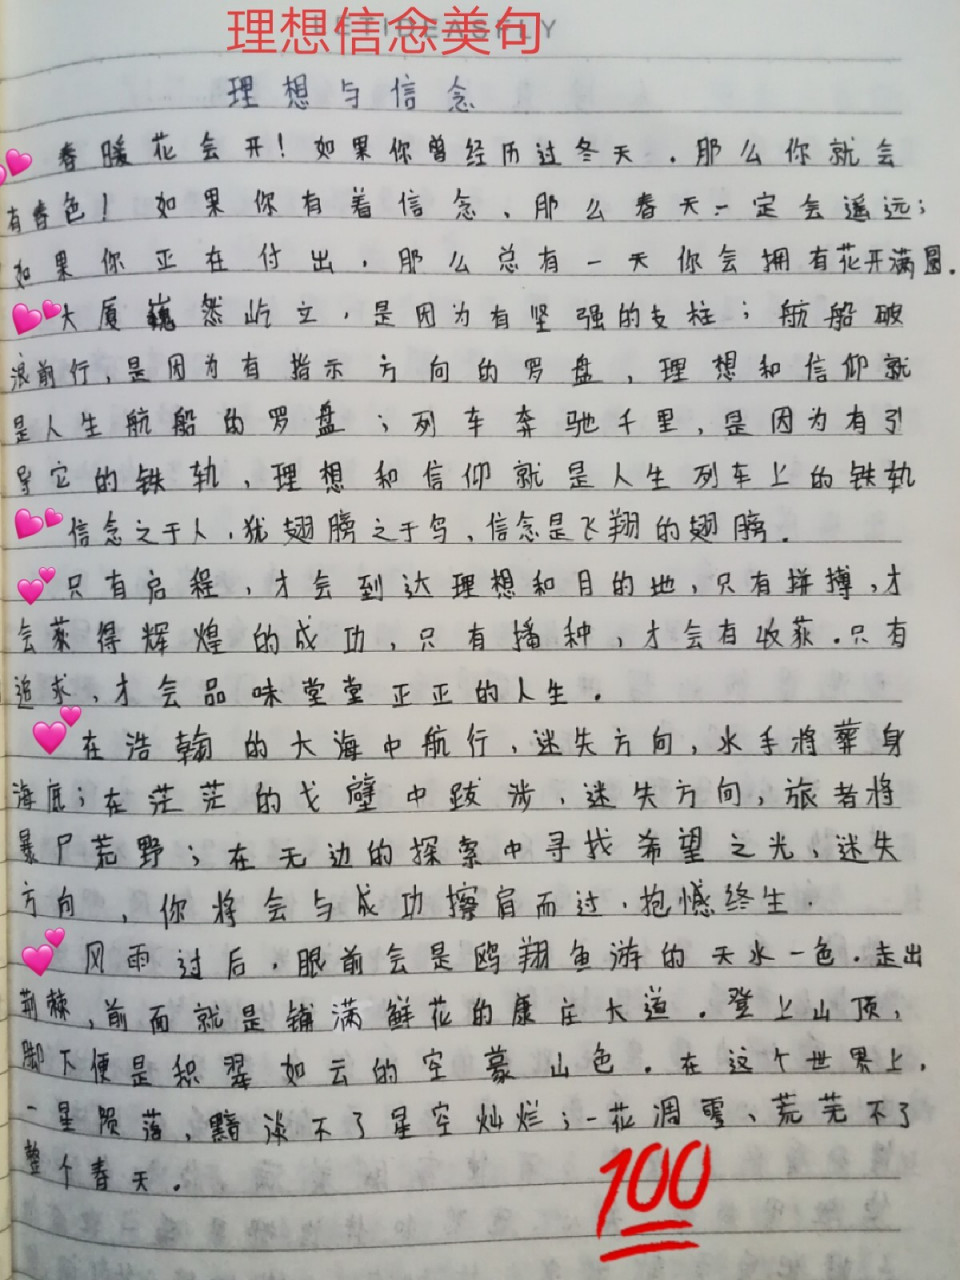 理想信念美句
理想与信念
春暖花会开！如果你曾经历过冬天，那么你就会
有春色！如果你有着信念、那么春天一定会遥远；
如果你正在付出，那么总有一天你会拥有花开满圆.
大厦巍然屹立，是因为有坚强的支柱；航船破
浪前行，是因为有指示方向的罗盘，理想和信仰就
是人生航船的罗盘；列车奔驰千里，是因为有引
导它的铁轨，理想和信仰就是人生列车上的铁轨
信念之于人，犹翅膀之于鸟，信念是飞翔的翅膀.
只有启程，才会到达理想和目的地，只有拼搏，才
会获得辉煌的成功，只有播种，才会有收获.只有
追求，才会品味堂堂正正的人生.
在浩翰的大海中航行，迷失方向，水手将葬身
海底；在茫茫的戈壁中跋涉，迷失方向，旅者将
暴尸荒野；在无边的探索中寻找希望之光，迷失
方向，你将会与成功擦肩而过，抱憾终生.
风雨过后，眼前会是鸥翔鱼游的天水一色.走出
荆棘，前面就是铺满鲜花的康庄大道.登上山顶，
脚下便是积翠如云的空蒙山色.在这个世界上，
一星陨落，黯淡不了星空灿烂；一花凋零、荒芜不了
整个春天.
100